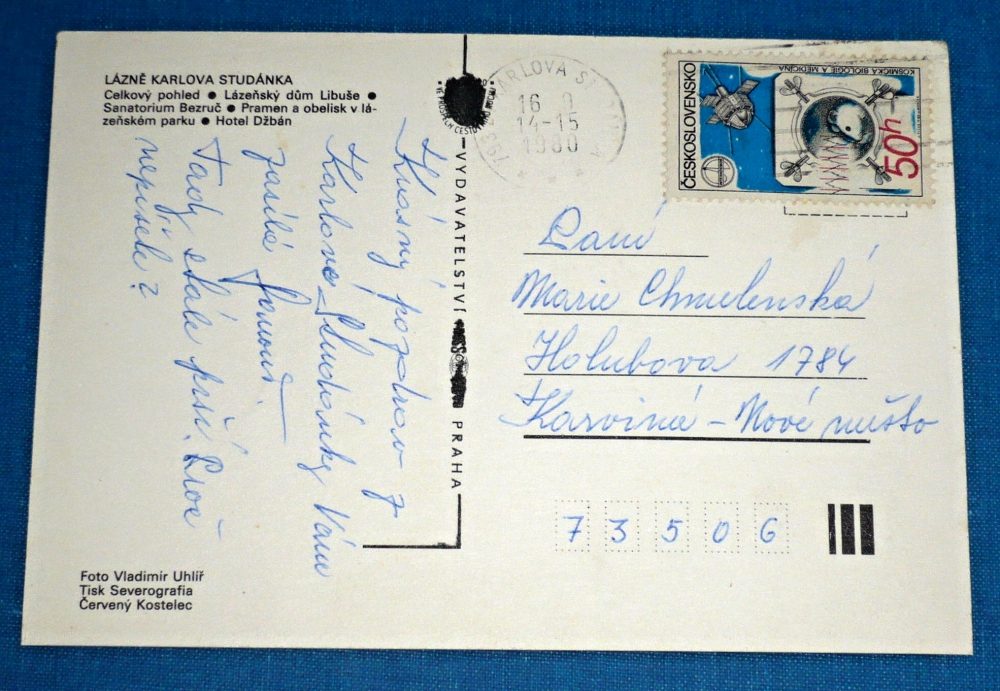 LÁZNĚ KARLOVA STUDÁNKA
Celkový pohled ● Lázeňský dům Libuše ●
Sanatorium Bezruč ● Pramen a obelisk v lá-
zeňském parku ● Hotel Džbán
Krásný pozdrav z
Karlovy Studánky Vám
zasílá
Tady stále prší. Proč
nepíšete?
Foto Vladimír Uhlíř
Tisk Severografia
Červený Kostelec
VYDAVATELSTVÍ
PRAHA
KARLOVA
16
14-15
1980
ČESKOSLOVENSKO
KOSMICKÁ BIOLOGIE A MEDICÍNA
50h
Paní
Marie Chmelenská
Holubova 1784
Karviná - Nové město
73506